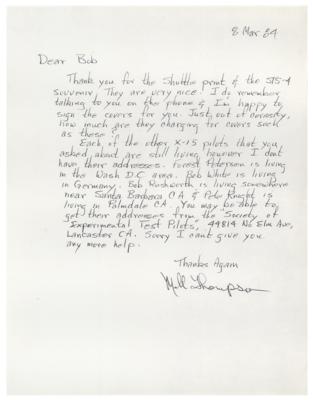 8 Mar 84
Dear Bob
Thank you for the Shuttle print & the STS-4
souvenir, They are very nice. I do remember
talking to you on the phone & I'm happy to
sign the covers for you. Just out of curiosity,
how much are they charging for covers such
as these?
Each of the other X-15 pilots that you
asked about are still living, however I dont
have their addresses. Forest Petersen is living
in the Wash D.C. area. Bob White is living
in Germany. Bob Rushworth is living somewhere
near Santa Barbara CA & Pete Knight is
living in Palmdale CA. You may be able to
get their addresses from the "Society of
Experimental Test Pilots", 44814 No Elm Ave,
Lancaster CA. Sorry I cant give you
any more help.
Thanks Again
Milt Thompson